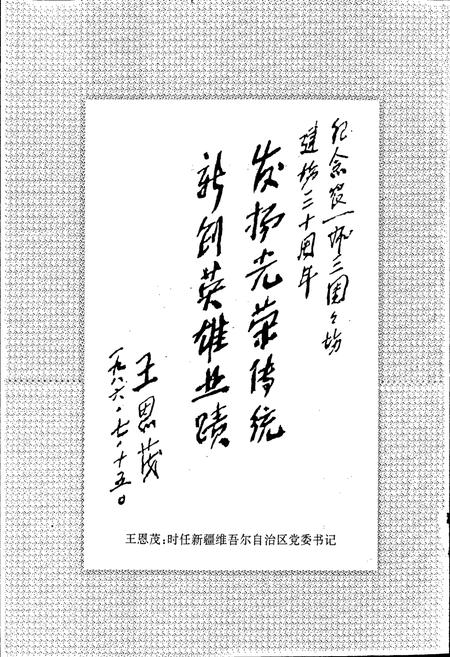 纪念农一师三团々场
建场三十周年
发扬光荣传统
新创英雄业蹟
王恩茂
一九八六·七·十五。
王恩茂:时任新疆维吾尔自治区党委书记